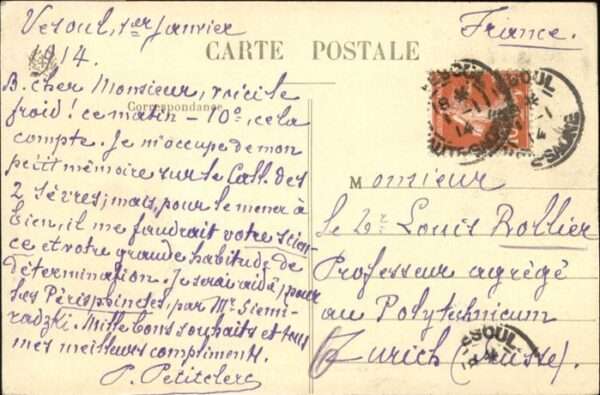 Vesoul, 1er Janvier
1914.
France.
CARTE POSTALE
Correspondance
B. cher Monsieur, voici le
froid! ce matin - 10°, cela
compte. Je m'occupe de mon
petit mémoire sur le Call. des
2 Sèvres; mais, pour le mener à
bien, il me faudrait votre scien-
ce et votre grande habitude de
détermination. Je serai aidé, pour
les Périsphinctes, par Mr. Siemi-
radzki. Mille bons souhaits et tous
mes meilleurs compliments.
P. Petitclerc
Monsieur
le Dr. Louis Rollier
Professeur agrégé
au Polytechnicum
Zurich (Suisse).
VESOUL
18
1-1
14
HAUTE-SAONE
10
VESOUL
1-1
HTE-SAONE
ESOUL